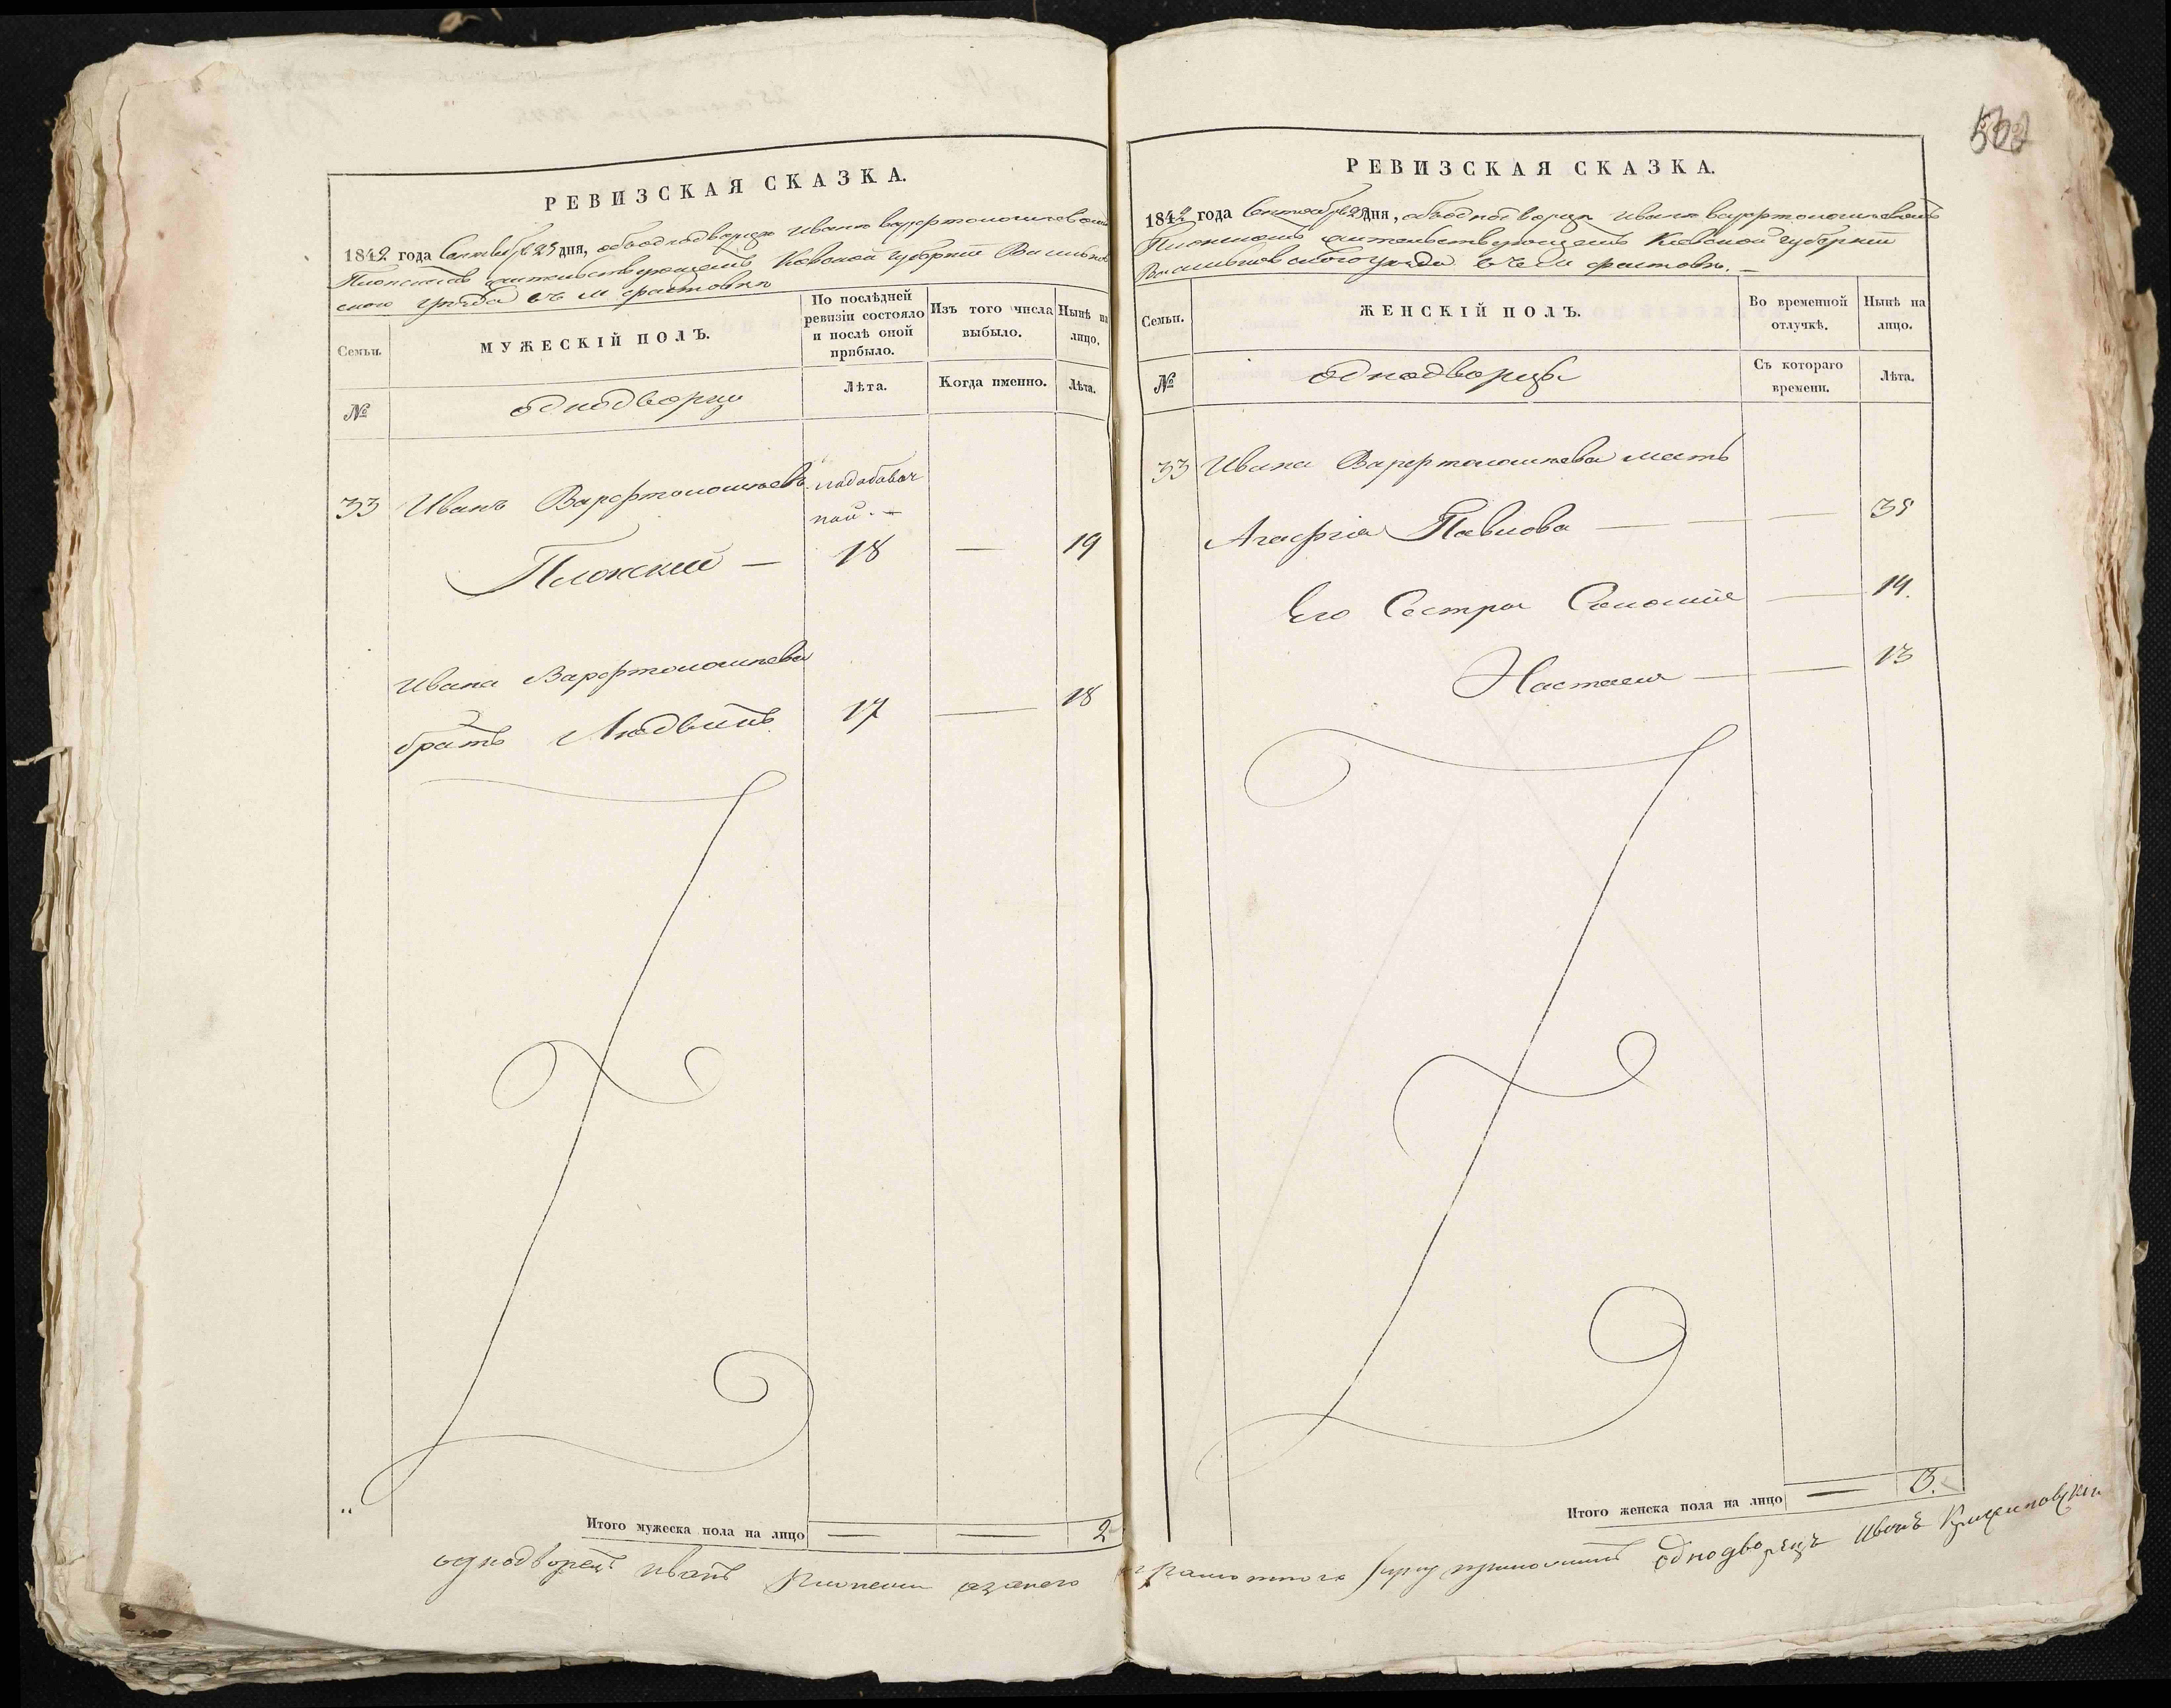 РЕВИЗСКАЯ СКАЗКА.
1842 года Сентября 25 дня, объ однодворце Иване Варфоломеевомъ
Плонскомъ жительствующемъ Киевской губернии Васильков
ского уезда въ м Фастовѣ
Семьи.
МУЖЕСКІЙ ПОЛЪ.
По послѣдней ревизіи состояло и послѣ оной прибыло.
Изъ того числа выбыло.
Нынѣ на лицо.
№
однодворцы
Лѣта.
Когда именно.
Лѣта.
33 Иванъ Варфтоломеевъ
Плонский — 18 — 19
Ивана Варфтоломеева
2
братъ Людвигъ 17 — 18
Итого мужеска пола на лицо — — 2
РЕВИЗСКАЯ СКАЗКА.
1842 года Сентября 25 дня, объ однодворце Иване Варфтоломеевомъ
Плонскомъ жительствующемъ Киевской губернии
Васильковского уезда въ м Фастовѣ. —
Семьи.
ЖЕНСКІЙ ПОЛЪ.
Во временной отлучкѣ.
Нынѣ на лицо.
№
однодворцы
Съ котораго времени.
Лѣта.
33 Ивана Варфтоломеева мать
Агафия Павлова — — — 35
Его Сестра Соломия — 14.
Настасия — — 13
Итого женска пола на лицо — 3.
однодворецъ Иванъ Плонский а за него
неграмотного руку приложилъ однодворецъ Иванъ